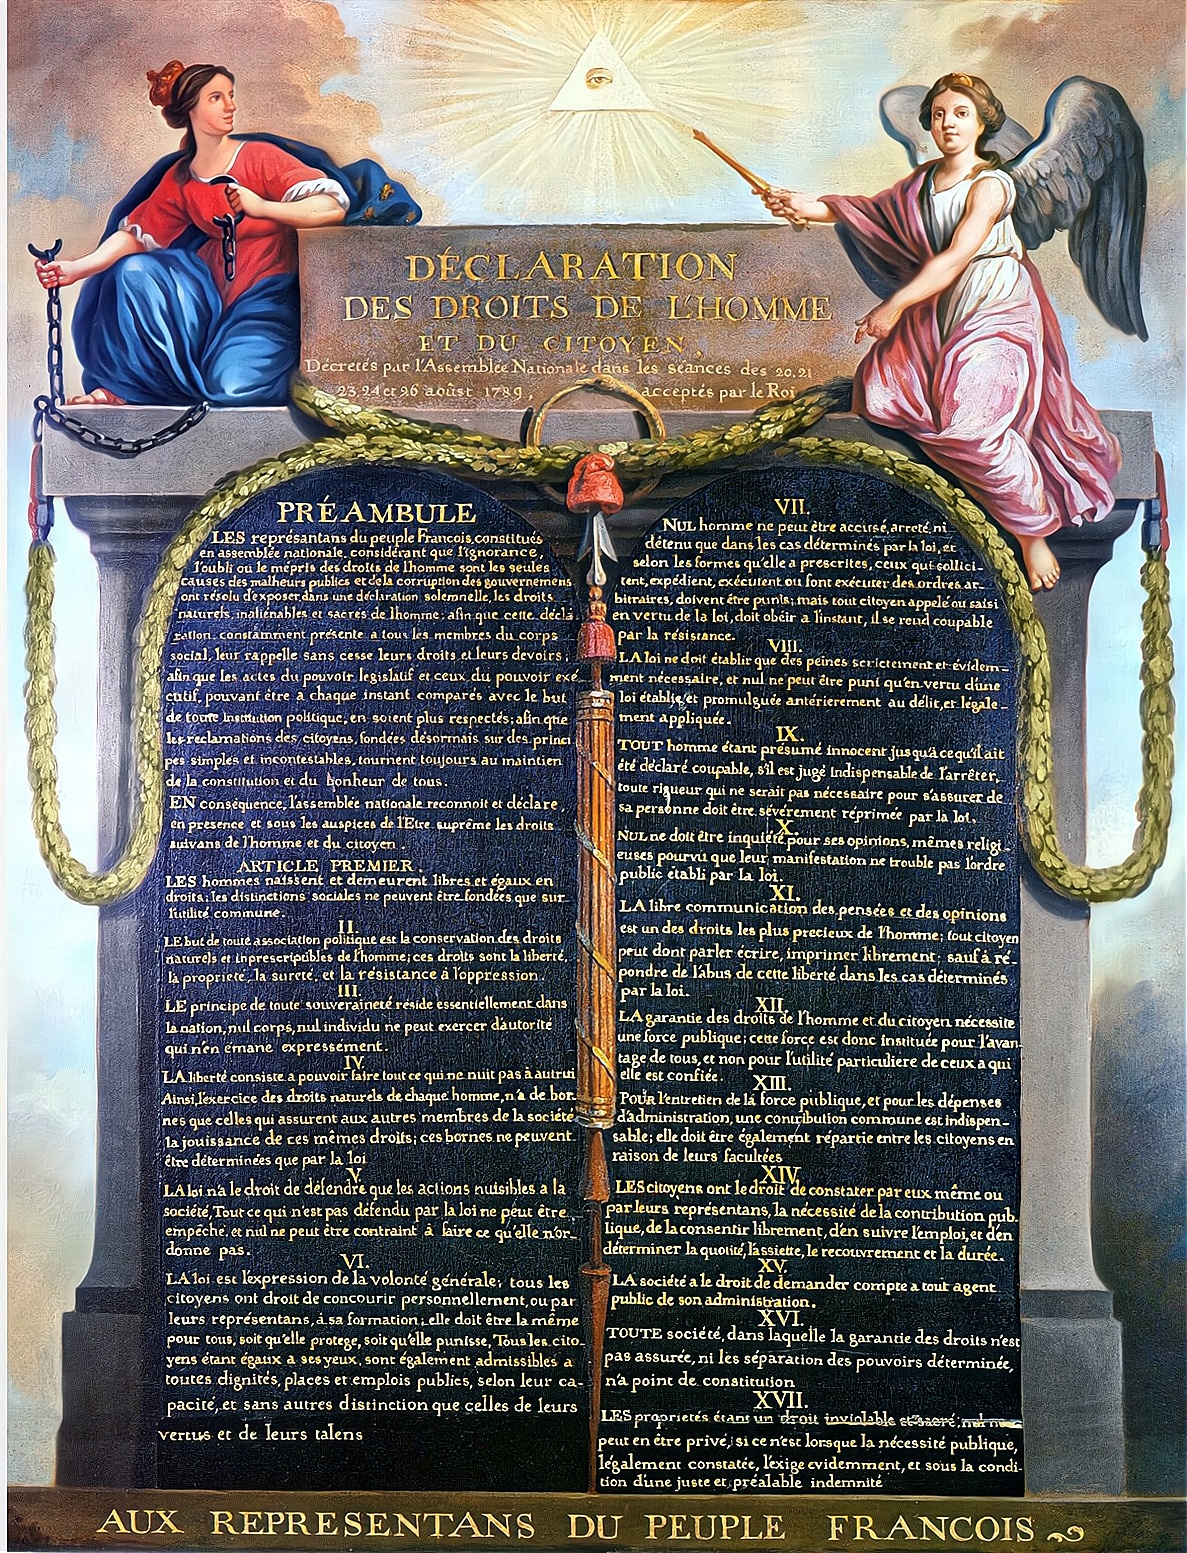 DÉCLARATION
DES DROITS DE L'HOMME
ET DU CITOYEN,
Décretés par l'Assemblée Nationale dans les séances des 20, 21
23, 24 et 26 aoûst 1789, acceptés par le Roi
PRÉAMBULE
LES représantans du peuple Francois, constitués
en assemblée nationale, considérant que l'ignorance,
l'oubli ou le mépris des droits de l'homme sont les seules
causes des malheurs publics et de la corruption des gouvernemens
ont résolu d'exposer dans une déclaration solemnelle, les droits
naturels, inaliénables et sacrés de l'homme; afin que cette décla
ration, constamment présente a tous les membres du corps
social, leur rappelle sans cesse leurs droits et leurs devoirs;
afin que les actes du pouvoir legislatif et ceux du pouvoir exé
cutif, pouvant être a chaque instant comparés avec le but
de toute institution politique, en soient plus respectés; afin que
les reclamations des citoyens, fondées désormais sur des princi
pes simples et incontestables, tournent toujours au maintien
de la constitution et du bonheur de tous.
EN conséquence, l'assemblée nationale reconnoit et déclare,
en presence et sous les auspices de l'Etre suprême les droits
suivans de l'homme et du citoyen.
ARTICLE PREMIER.
LES hommes naissent et demeurent libres et égaux en
droits; les distinctions sociales ne peuvent être fondées que sur
l'utilité commune.
II.
LE but de toute association politique est la conservation des droits
naturels et inprescriptibles de l'homme; ces droits sont la liberté,
la propriété, la sureté, et la résistance à l'oppression.
III.
LE principe de toute souveraineté réside essentiellement dans
la nation, nul corps, nul individu ne peut exercer d'autorité
qui n'en émane expressément.
IV.
LA liberté consiste a pouvoir faire tout ce qui ne nuit pas à autrui
Ainsi, l'exercice des droits naturels de chaque homme, n'a de bor-
nes que celles qui assurent aux autres membres de la société
la jouissance de ces mêmes droits; ces bornes ne peuvent
être déterminées que par la loi
V.
LA loi n'a le droit de défendre que les actions nuisibles a la
société. Tout ce qui n'est pas défendu par la loi ne peut être
empêché, et nul ne peut être contraint à faire ce qu'elle n'or-
donne pas.
VI.
LA loi est l'expression de la volonté générale; tous les
citoyens ont droit de concourir personnellement, ou par
leurs représentans, à sa formation; elle doit être la même
pour tous, soit qu'elle protege, soit qu'elle punisse. Tous les cito-
yens étant égaux a ses yeux, sont également admissibles a
toutes dignités, places et emplois publics, selon leur ca-
pacité, et sans autres distinction que celles de leurs
vertus et de leurs talens
VII.
NUL homme ne peut être accusé, arreté, ni
détenu que dans les cas déterminés par la loi, et
selon les formes qu'elle a prescrites, ceux qui sollici-
tent, expédient, exécutent ou font exécuter des ordres ar-
bitraires, doivent être punis; mais tout citoyen appelé ou saisi
en vertu de la loi, doit obéir a l'instant, il se rend coupable
par la résistance.
VIII.
LA loi ne doit établir que des peines strictement et évidem-
ment nécessaire, et nul ne peut être puni qu'en vertu d'une
loi établie, et promulguée antérierement au délit, et légale-
ment appliquée.
IX.
TOUT homme étant présumé innocent jusqu'a ce qu'il ait
été déclaré coupable, s'il est jugé indispensable de l'arrêter,
toute rigueur qui ne serait pas nécessaire pour s'assurer de
sa personne doit être sévérement réprimée par la loi.
X.
NUL ne doit être inquiété pour ses opinions, mêmes religi-
euses pourvu que leur manifestation ne trouble pas l'ordre
public établi par la loi.
XI.
LA libre communication des pensées et des opinions
est un des droits les plus precieux de l'homme; tout citoyen
peut dont parler écrire, imprimer librement; sauf à ré-
pondre de l'abus de cette liberté dans les cas déterminés
par la loi.
XII.
LA garantie des droits de l'homme et du citoyen nécessite
une force publique; cette force est donc instituée pour l'avan-
tage de tous, et non pour l'utilité particuliere de ceux a qui
elle est confiée.
XIII.
POUR l'entretien de la force publique, et pour les dépenses
d'administration, une contribution commune est indispen-
sable; elle doit être également répartie entre les citoyens en
raison de leurs facultées
XIV.
LES citoyens ont le droit de constater par eux même ou
par leurs représentans, la nécessité de la contribution pub-
lique, de la consentir librement, d'en suivre l'emploi, et d'en
déterminer la quotité, l'assiette, le recouvrement et la durée.
XV.
LA société a le droit de demander compte a tout agent
public de son administration.
XVI.
TOUTE société, dans laquelle la garantie des droits n'est
pas assurée, ni les séparation des pouvoirs déterminée,
n'a point de constitution
XVII.
LES proprietés étant un droit inviolable et sacré, nul ne
peut en être privé, si ce n'est lorsque la nécessité publique,
légalement constatée, l'exige evidemment, et sous la condi-
tion d'une juste et préalable indemnité
AUX REPRESENTANS DU PEUPLE FRANCOIS